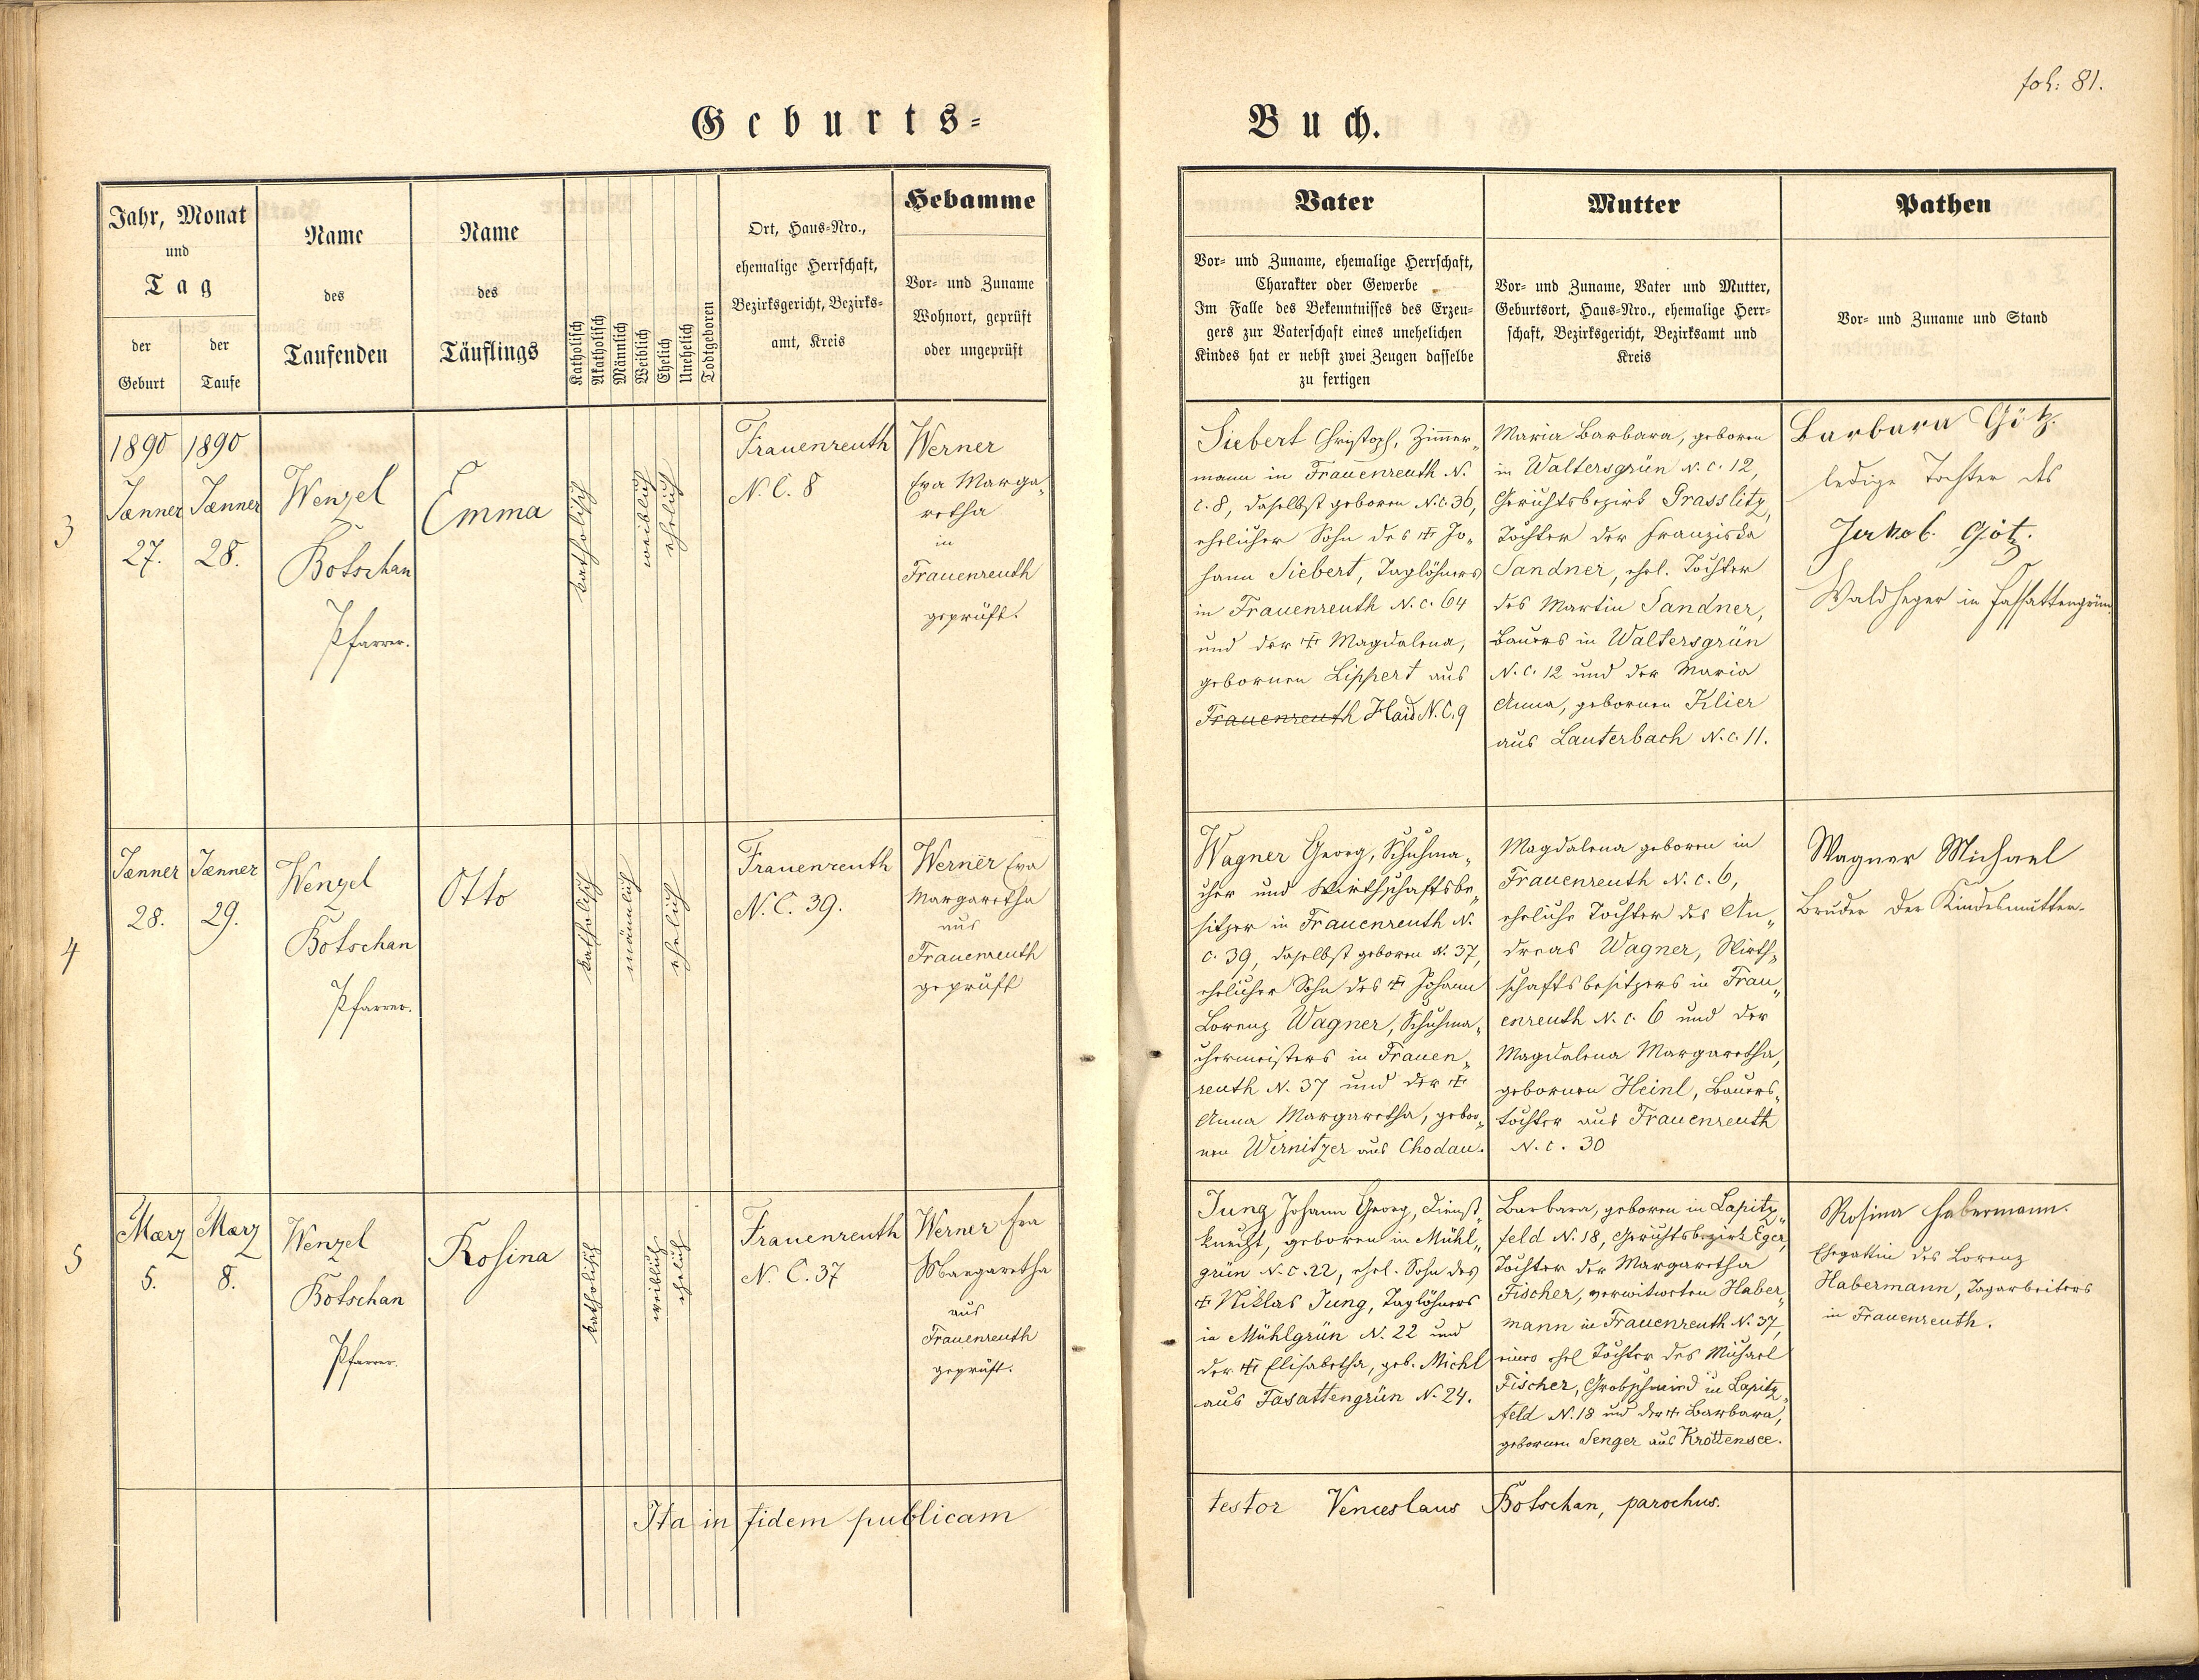 fol: 81.
Geburts-
Buch.
Jahr, Monat
und
Tag
der
Geburt
der
Taufe
Name
des
Taufenden
Name
des
Täuflings
Katholisch
Akatholisch
Männlich
Weiblich
Ehelich
Unehelich
Todtgeboren
Ort, Haus-Nro.,
ehemalige Herrschaft,
Bezirksgericht, Bezirks-
amt, Kreis
Hebamme
Vor- und Zuname
Wohnort, geprüft
oder ungeprüft
Vater
Vor- und Zuname, ehemalige Herrschaft,
Charakter oder Gewerbe
Im Falle des Bekenntnisses des Erzeu-
gers zur Vaterschaft eines unehelichen
Kindes hat er nebst zwei Zeugen dasselbe
zu fertigen
Mutter
Vor- und Zuname, Vater und Mutter,
Geburtsort, Haus-Nro., ehemalige Herr-
schaft, Bezirksgericht, Bezirksamt und
Kreis
Pathen
Vor- und Zuname und Stand
3
1890
Jænner
27.
1890
Jænner
28.
Wenzel
Botschan
Pfarrer.
Emma
katholisch
weiblich
ehelich
Frauenreuth
N. C. 8
Werner
Eva Marga„
retha
in
Frauenreuth
geprüft.
Siebert Christoph, Zimmer„
mann in Frauenreuth N.
c. 8, daselbst geboren N.c. 36,
ehelicher Sohn des † Jo„
hann Siebert, Taglöhners
in Frauenreuth N.c. 64
und der † Magdalena,
gebornen Lippert aus
Frauenreuth Haid N.C. 9
Maria Barbara, geboren
in Waltersgrün N.c. 12,
Gerichtsbezirk Grasslitz,
Tochter der Franziska
Sandner, ehel. Tochter
des Martin Sandner,
Bauers in Waltersgrün
N.c. 12 und der Maria
Anna, gebornen Klier
aus Lauterbach N.c. 11.
Barbara Götz.
ledige Tochter des
Jakob Götz.
Waldheger in Fassattengrün
4
Jænner
28.
Jænner
29.
Wenzel
Botschan
Pfarrer.
Otto
katholisch
männlich
ehelich
Frauenreuth
N. C. 39.
Werner Eva
Margaretha
aus
Frauenreuth
geprüft
Wagner Georg, Schuhma„
cher und Wirthschaftsbe„
sitzer in Frauenreuth N.
c. 39, daselbst geboren N. 37,
ehelicher Sohn des † Johann
Lorenz Wagner, Schuhma„
chermeisters in Frauen„
reuth N. 37 und der †
Anna Margaretha, gebor„
nen Wirnitzer aus Chodau.
Magdalena geboren in
Frauenreuth N.c. 6,
eheliche Tochter des An„
dreas Wagner, Wirth„
schaftsbesitzers in Frau„
enreuth N.c. 6 und der
Magdalena Margaretha,
gebornen Heinl, Bauers„
tochter aus Frauenreuth
N.c. 30
Wagner Michael
Bruder der Kindesmutter.
5
Mærz
5.
Mærz
8.
Wenzel
Botschan
Pfarrer.
Rosina
katholisch
weiblich
ehelich
Frauenreuth
N. C. 37
Werner Eva
Margaretha
aus
Frauenreuth
geprüft.
Jung Johann Georg, Dienst„
knecht, geboren in Mühl„
grün N.c. 22, ehel. Sohn des
† Niklas Jung, Taglöhners
in Mühlgrün N. 22 und
der † Elisabetha, geb. Michl
aus Fasattengrün N. 24.
Barbara, geboren in Lapitz„
feld N. 18, Gerichtsbezirk Eger,
Tochter der Margaretha
Fischer, verwitweten Haber„
mann in Frauenreuth N. 37,
einer ehel Tochter des Michael
Fischer, Grobschmied in Lapitz„
feld N. 18 und der † Barbara,
gebornen Senger aus Krottensee.
Rosina Habermann.
Ehegattin des Lorenz
Habermann, Tagarbeiters
in Frauenreuth.
Ita in fidem publicam
testor Venceslaus Botschan, parochus.